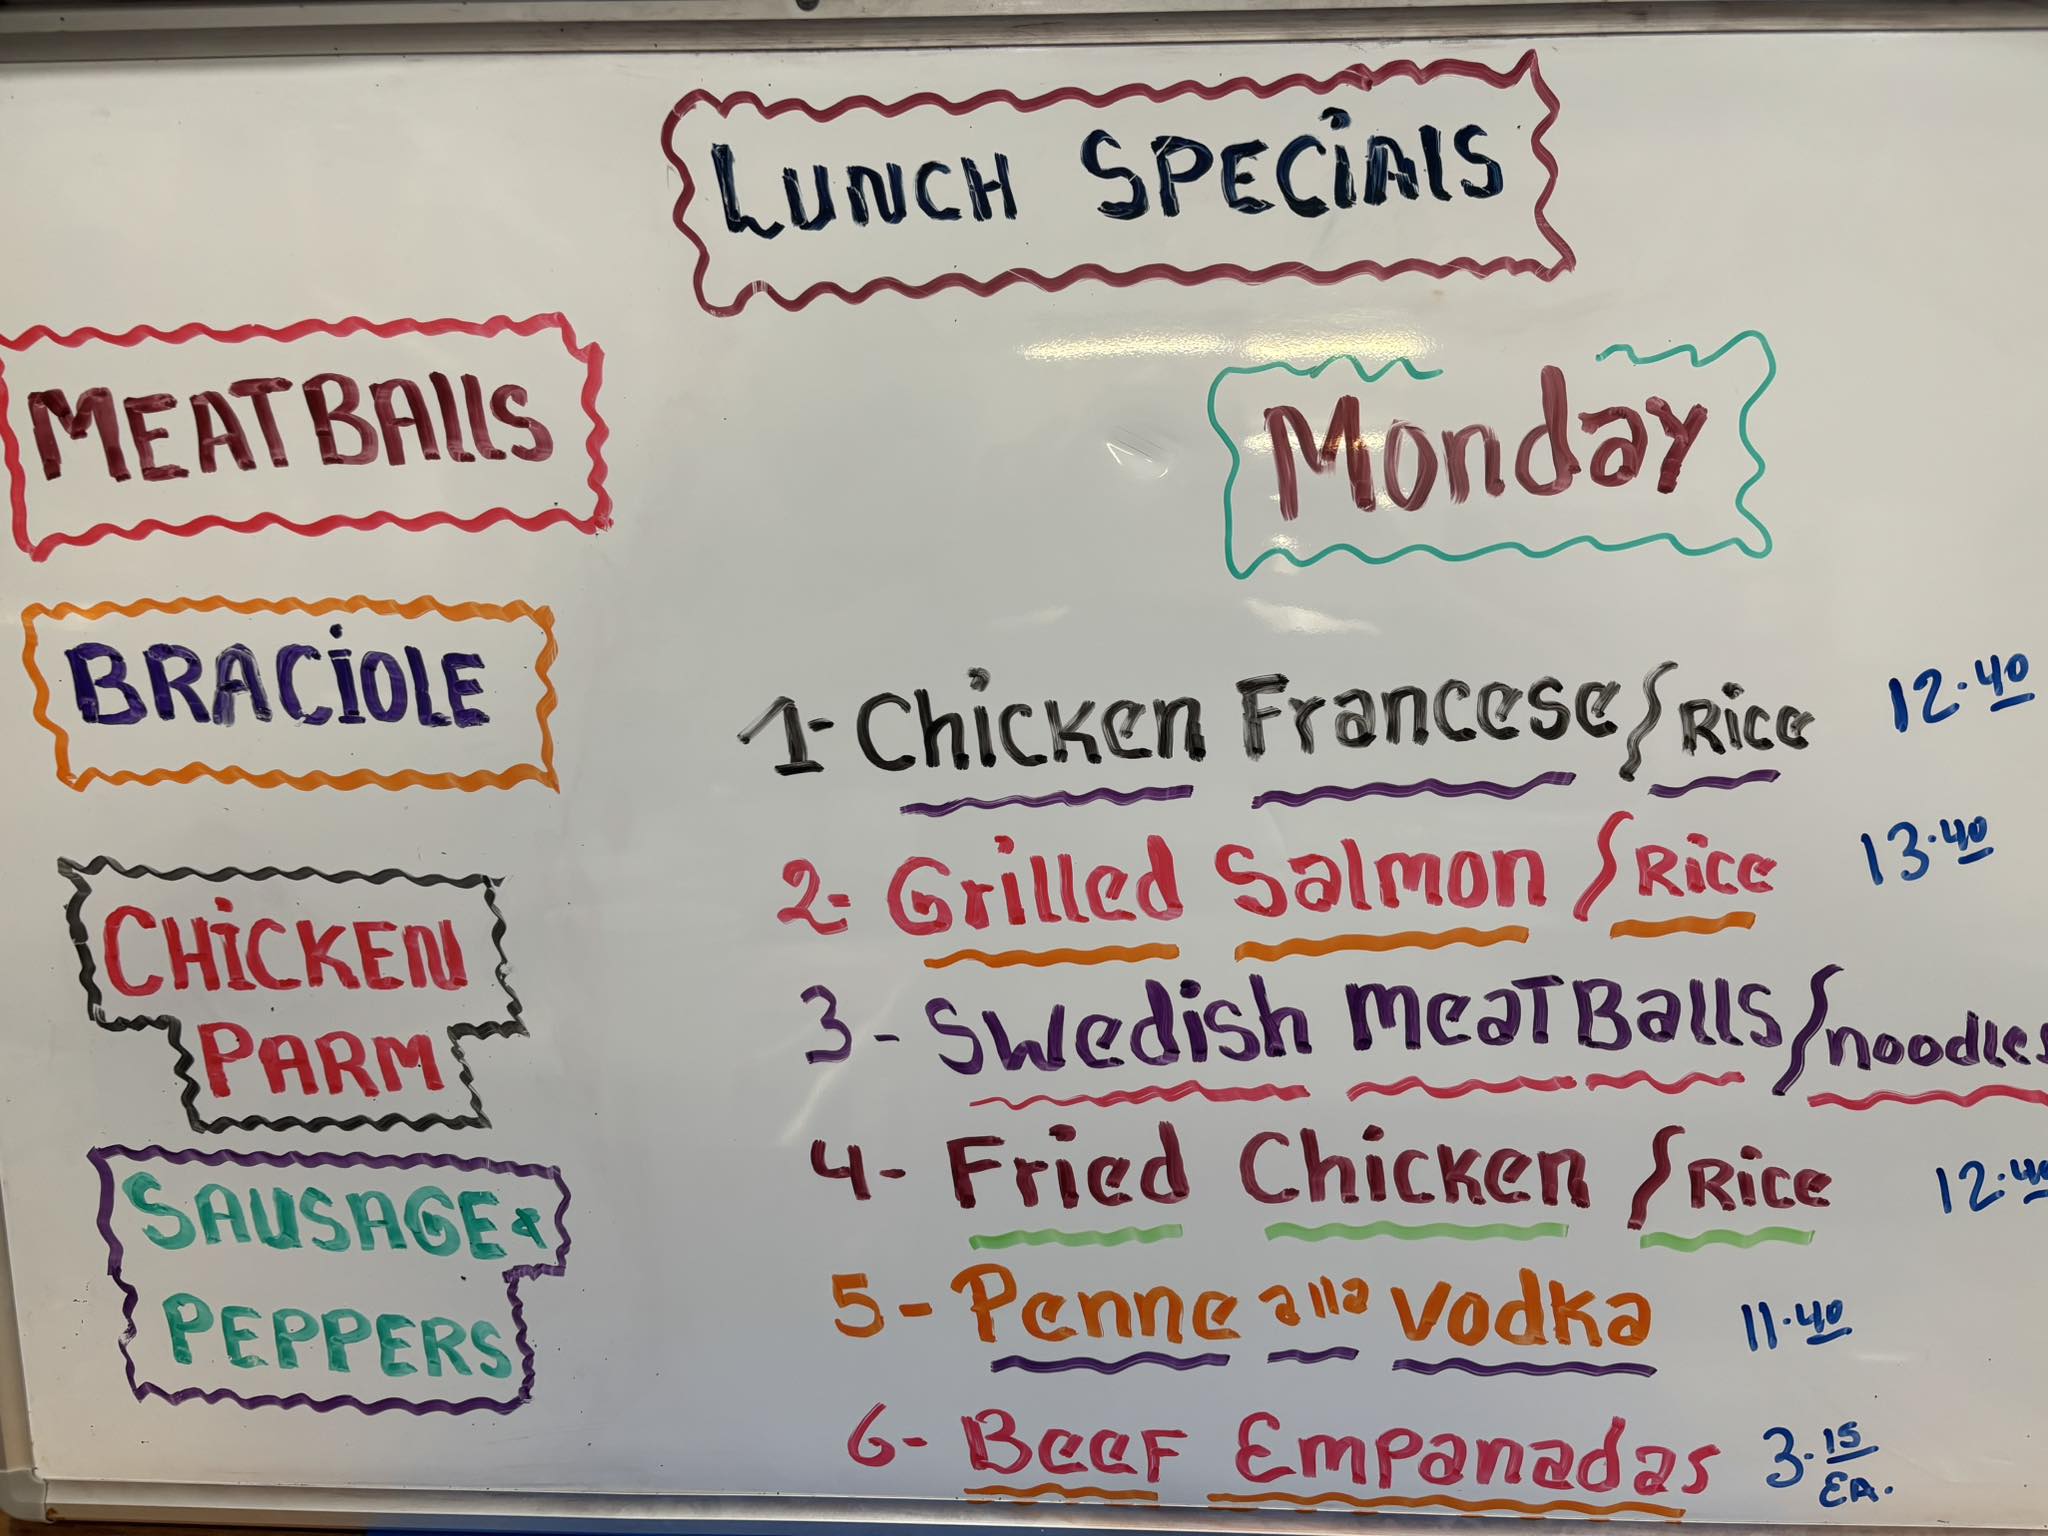 LUNCH SPECiAlS
MEATBAllS
BRACiOLE
CHiCKEN
PARM
SAUSAGE &
PEPPERS
Monday
1- Chicken Francese / Rice 12.40
2- Grilled Salmon / Rice 13.40
3- Swedish meatBalls / noodles
4- Fried Chicken / Rice 12.40
5- Penne alla vodka 11.40
6- Beef Empanadas 3.15 EA.